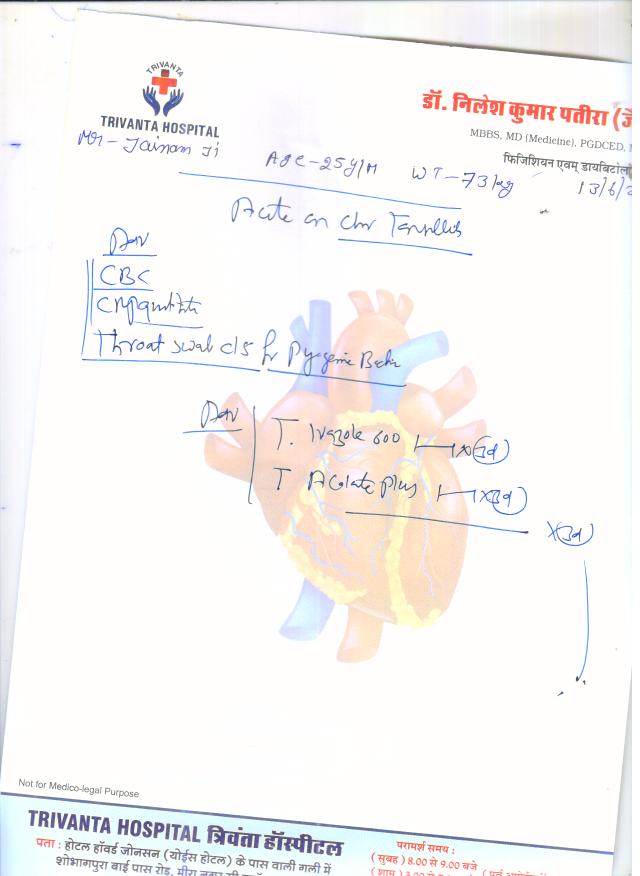 TRIVANTA
TRIVANTA HOSPITAL
डॉ. निलेश कुमार पतीरा (जै
MBBS, MD (Medicine), PGDCED,
फिजिशियन एवम् डायबिटोल
Mr - Jainam Ji
Age - 25y/M WT - 73 kg 13/6/2
Acute on Chr Tonsillitis
Adv
CBC
CRP quantitative
Throat swab c/s for Pyogenic
Adv
T. 600 x 3d
T Plus x 3d
x 3d
Not for Medico-legal Purpose
TRIVANTA HOSPITAL त्रिवंता हॉस्पीटल
पता : होटल हॉवर्ड जोनसन (योईस होटल) के पास वाली गली में
शोभागपुरा बाई पास रोड,
परामर्श समय :
( सुबह ) 8.00 से 9.00 बजे
( शाम )